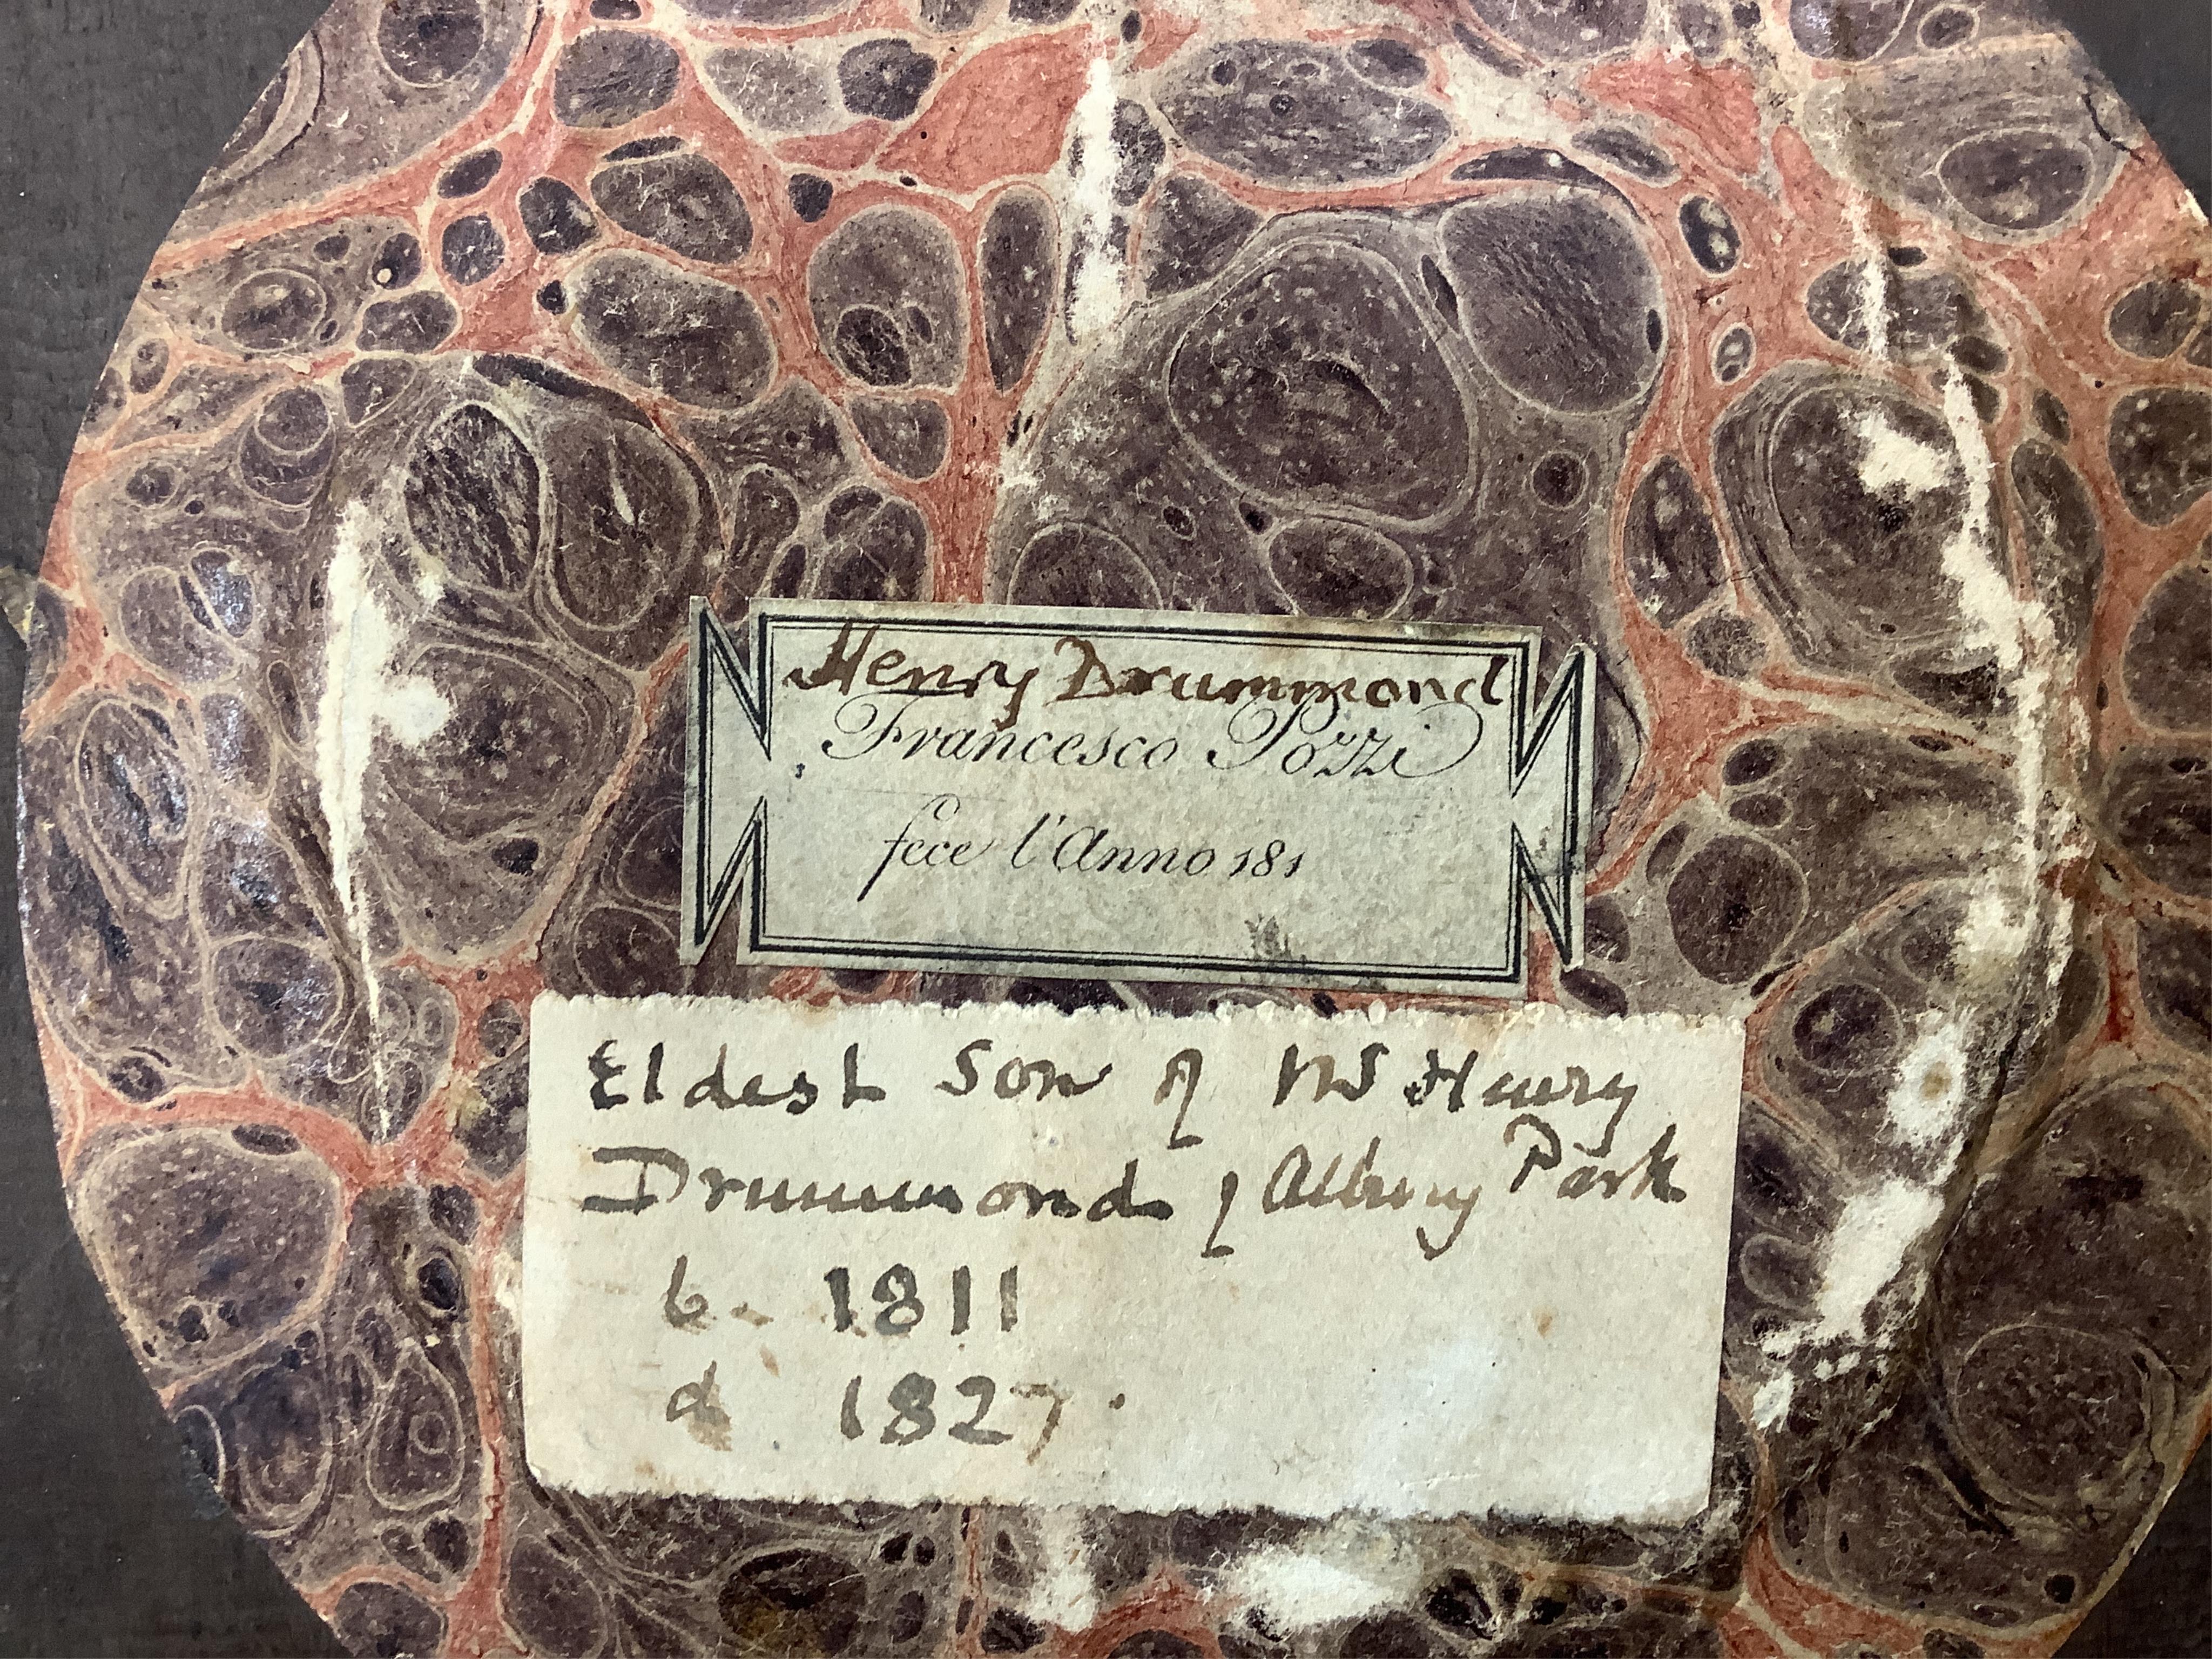 Henry Drummond
Francesco Pozzi
fece l'Anno 181
Eldest Son of Mr Henry
Drummond of Albury Park
b. 1811
d 1827.